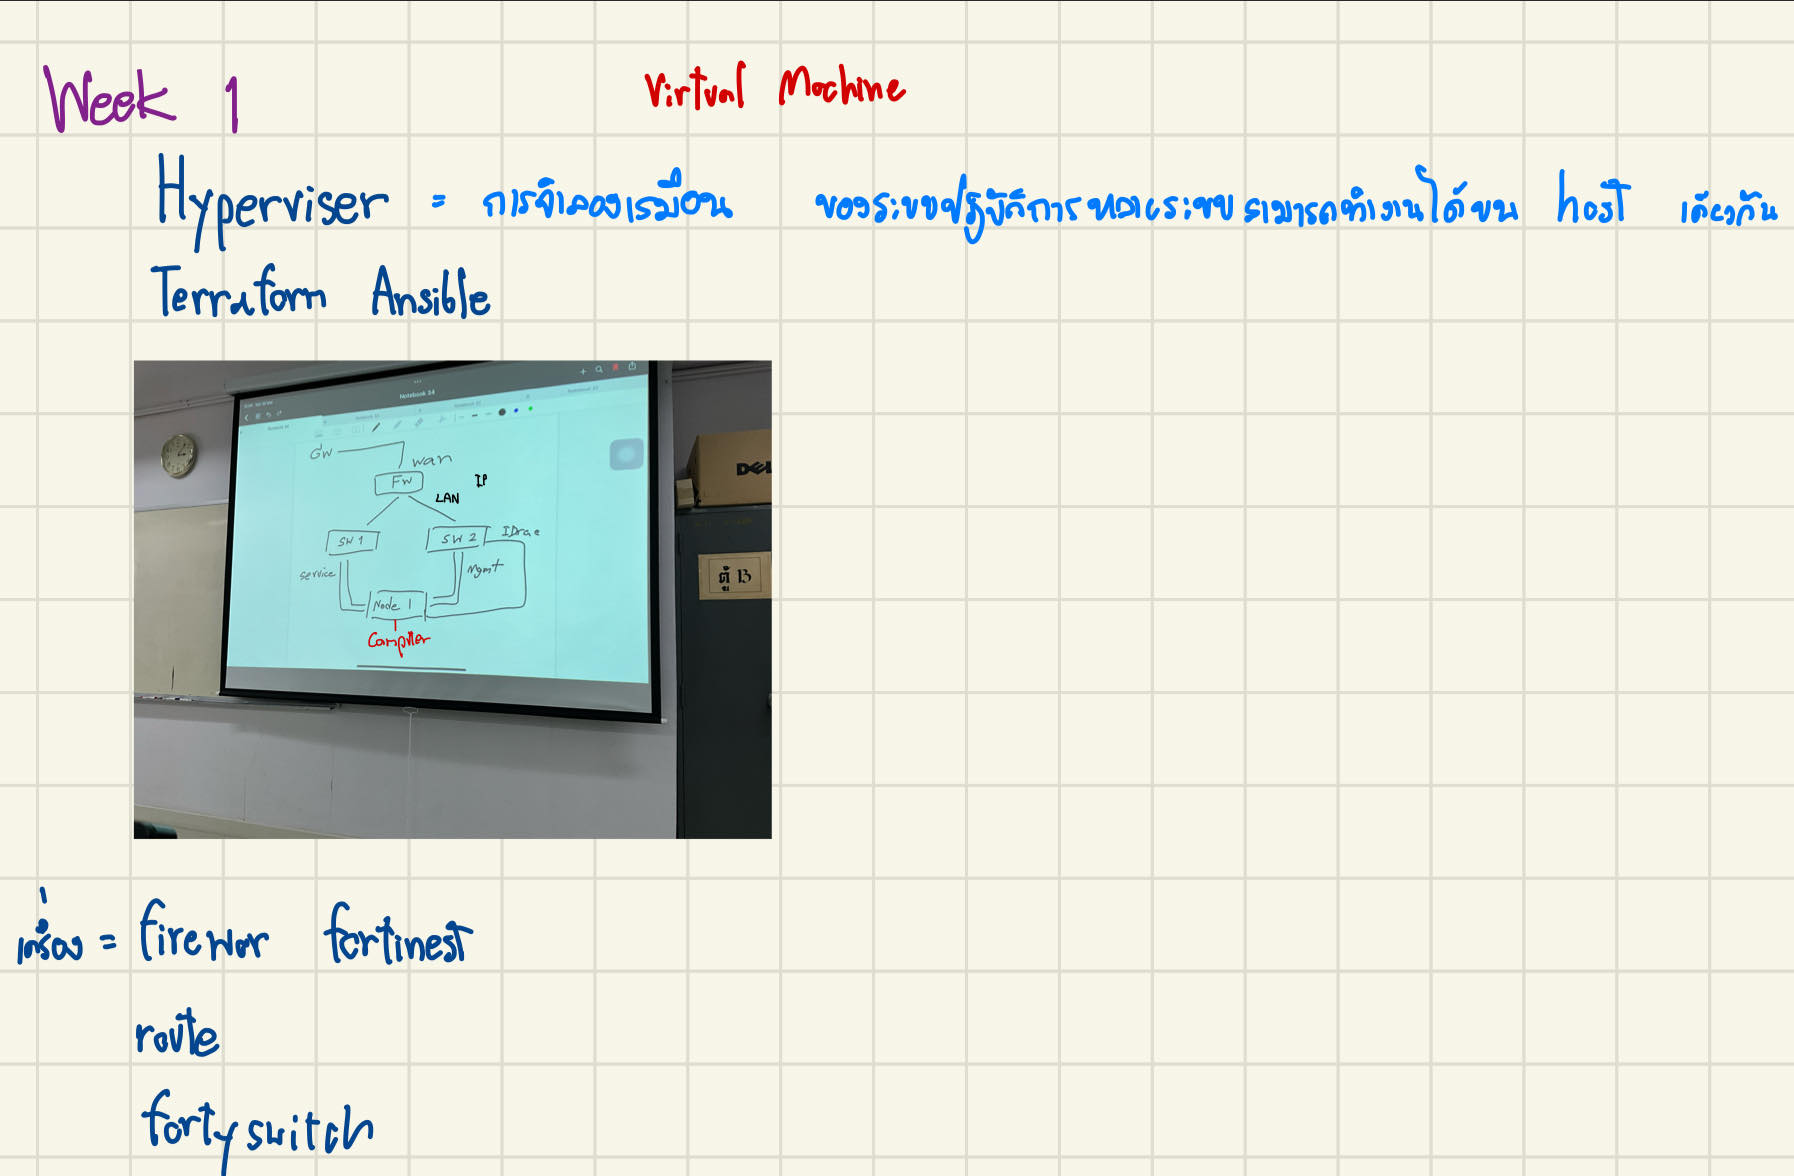 Week 1
Virtual Machine
Hyperviser = การจำลองเสมือน ของระบบปฏิบัติการหลายระบบสามารถทำงานได้บน host เดียวกัน
Terraform Ansible
Notebook 34
GW
wan
FW
IP
LAN
SW 1
SW 2
IDrac
service
Mgmt
Node 1
DEL
ตู้ 13
เครื่อง = firewor fortinest
route
fortyswitch